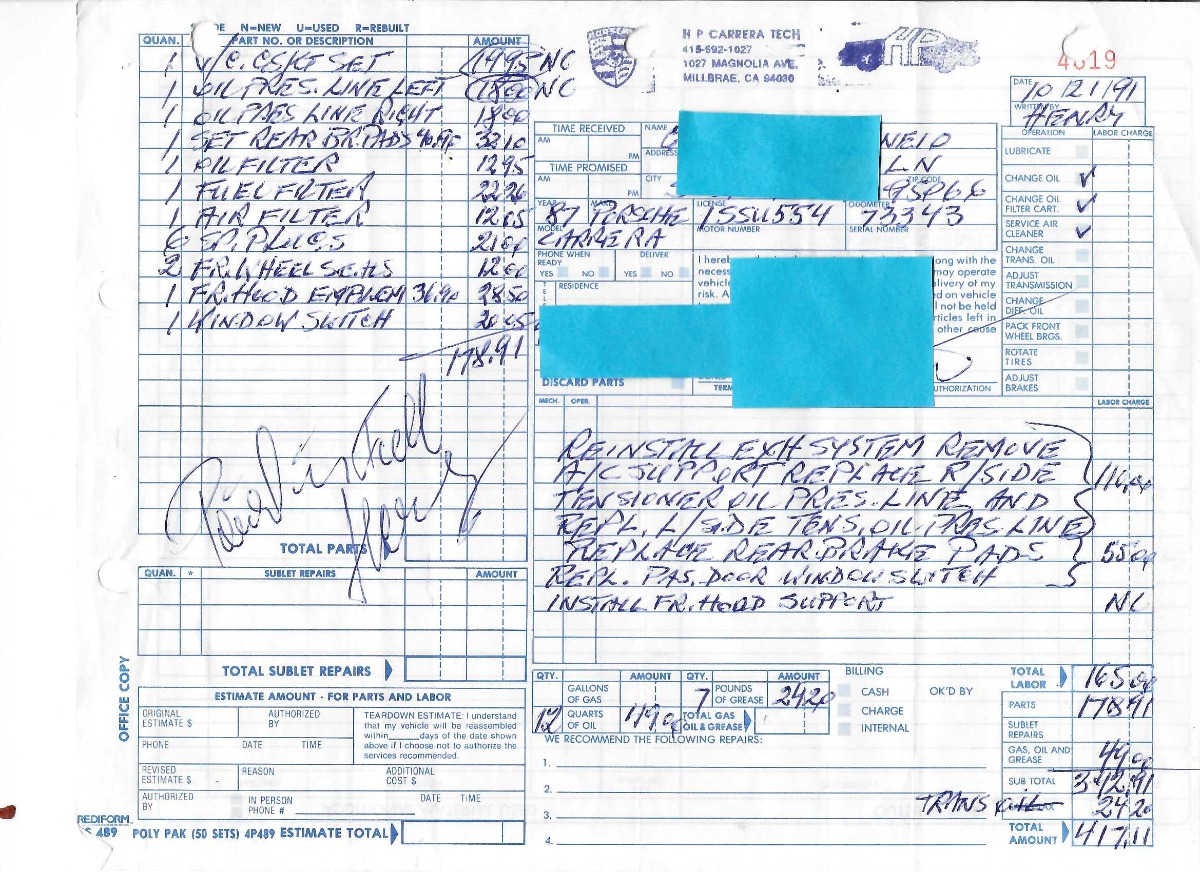 DE N=NEW U=USED R=REBUILT
QUAN. PART NO. OR DESCRIPTION AMOUNT
1 V/C. GSKT SET 19 95 NC
1 OIL PRES. LINE LEFT 18 00 NC
1 OIL PRES LINE RIGHT 18 00
1 SET REAR BR. PADS 32 10
1 OIL FILTER 12 95
1 FUEL FILTER 22 26
1 AIR FILTER 12 05
6 SP. PLUGS 21 00
2 FR. WHEEL SEALS 12 00
1 FR. HOOD EMBLEM 36.90 28.50
1 WINDOW SWITCH 20 05
178.91
Paid install Henry
TOTAL PARTS
QUAN. * SUBLET REPAIRS AMOUNT
TOTAL SUBLET REPAIRS
ESTIMATE AMOUNT - FOR PARTS AND LABOR
ORIGINAL ESTIMATE $ AUTHORIZED BY
PHONE DATE TIME
TEARDOWN ESTIMATE: I understand
that my vehicle will be reassembled
within____days of the date shown
above if I choose not to authorize the
services recommended.
REVISED ESTIMATE $ REASON ADDITIONAL COST $
AUTHORIZED BY IN PERSON PHONE # DATE TIME
OFFICE COPY
REDIFORM
489 POLY PAK (50 SETS) 4P489 ESTIMATE TOTAL
H P CARRERA TECH
415-692-1027
1027 MAGNOLIA AVE.
MILLBRAE, CA 94030
4619
DATE 10 121/91
WRITTEN BY HENRY
TIME RECEIVED NAME NEIO
AM PM ADDRESS LN
TIME PROMISED CITY ZIP CODE 95066
AM PM
YEAR MAKE LICENSE ODOMETER
87 PORSCHE 1SSU554 73343
MODEL MOTOR NUMBER SERIAL NUMBER
CARRERA
PHONE WHEN READY DELIVER
YES NO YES NO
RESIDENCE
I hereb along with the
necess may operate
vehicle delivery of my
risk. A ed on vehicle
l not be held
articles left in
other cause
DISCARD PARTS TERM AUTHORIZATION
OPERATION LABOR CHARGE
LUBRICATE
CHANGE OIL ✓
CHANGE OIL FILTER CART. ✓
SERVICE AIR CLEANER ✓
CHANGE TRANS. OIL
ADJUST TRANSMISSION
CHANGE DIFF. OIL
PACK FRONT WHEEL BRGS.
ROTATE TIRES
ADJUST BRAKES
MECH. OPER. LABOR CHARGE
REINSTALL EXH SYSTEM REMOVE
A/C SUPPORT REPLACE R/SIDE 110 00
TENSIONER OIL PRES. LINE AND
REPL. L/SIDE TENS. OIL PRES. LINE
REPLACE REAR BRAKE PADS 55 00
REPL. PAS. DOOR WINDOW SWITCH
INSTALL FR. HOOD SUPPORT NC
QTY. AMOUNT QTY. AMOUNT
GALLONS OF GAS 7 POUNDS OF GREASE 24 20
12 QUARTS OF OIL 49 00 TOTAL GAS OIL & GREASE
BILLING
CASH OK'D BY
CHARGE
INTERNAL
WE RECOMMEND THE FOLLOWING REPAIRS:
1.
2.
3.
4.
TOTAL LABOR 165 00
PARTS 178 91
SUBLET REPAIRS
GAS, OIL AND GREASE 49 00
SUB TOTAL 392.91
TRANS 24 20
TOTAL AMOUNT 417.11